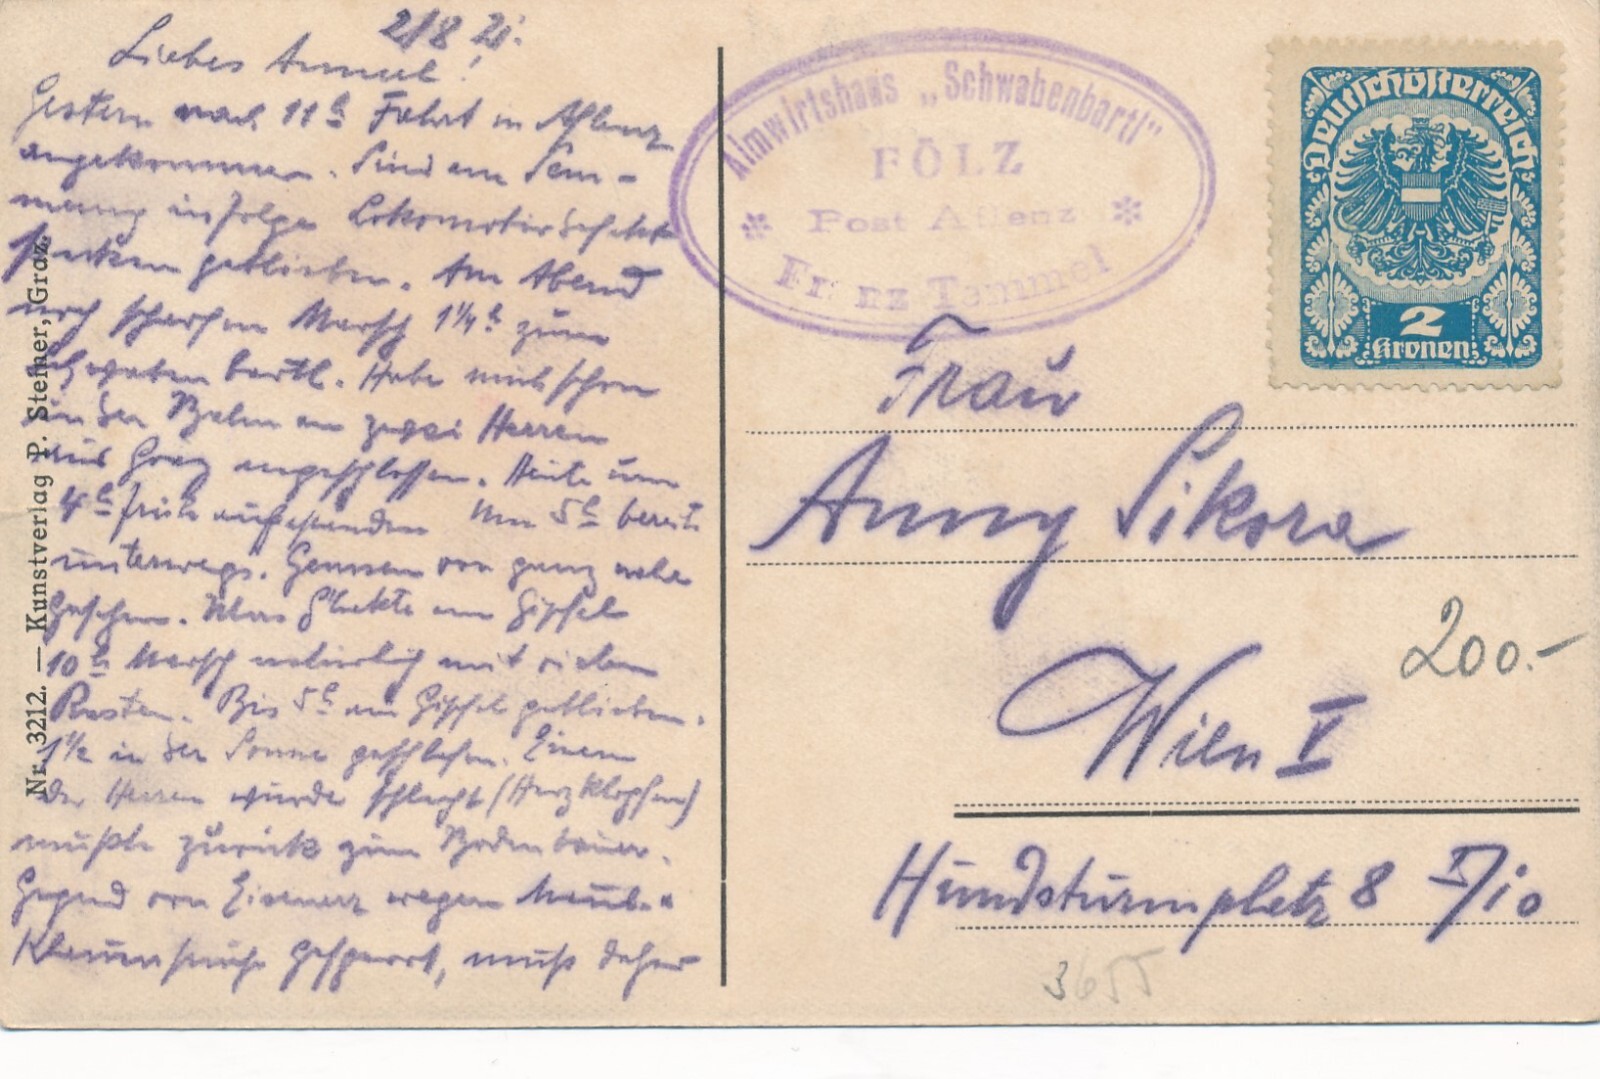 2/8 21.
Liebes Annerl!
Gestern nach 11h Fahrt in Aflenz
angekommen. Sind am Sem-
mering infolge Lokomotivdefekt
stecken geblieben. Am Abend
noch scharfen Marsch 1 1/4h zum
Schwabenbartl. Habe mich schon
in der Bahn an zwei Herren
aus Graz angeschlossen. Heute um
4h früh aufgestanden Um 5h bereits
unterwegs. Gemsen von ganz nahe
gesehen. am Gipfel
10h Marsch natürlich mit vielen
Rasten. Bis 5h am Gipfel geblieben.
1 1/2 in der Sonne geschlafen. Einem
der Herren wurde schlecht (Herzklopfen)
mußte zurück zum Bodenbauer.
Gegend von Eisenerz wegen Maul- u
Klauenseuche gesperrt, muß daher
Nr. 3212. — Kunstverlag P. Steiner, Graz.
Almwirtshaus „Schwabenbartl"
FÖLZ
Post Aflenz
Franz Temmel
Deutschösterreich
2
Kronen
Frau
Anny Sikora
Wien V
200.-
Hundsturmplatz 8 I/10
3655